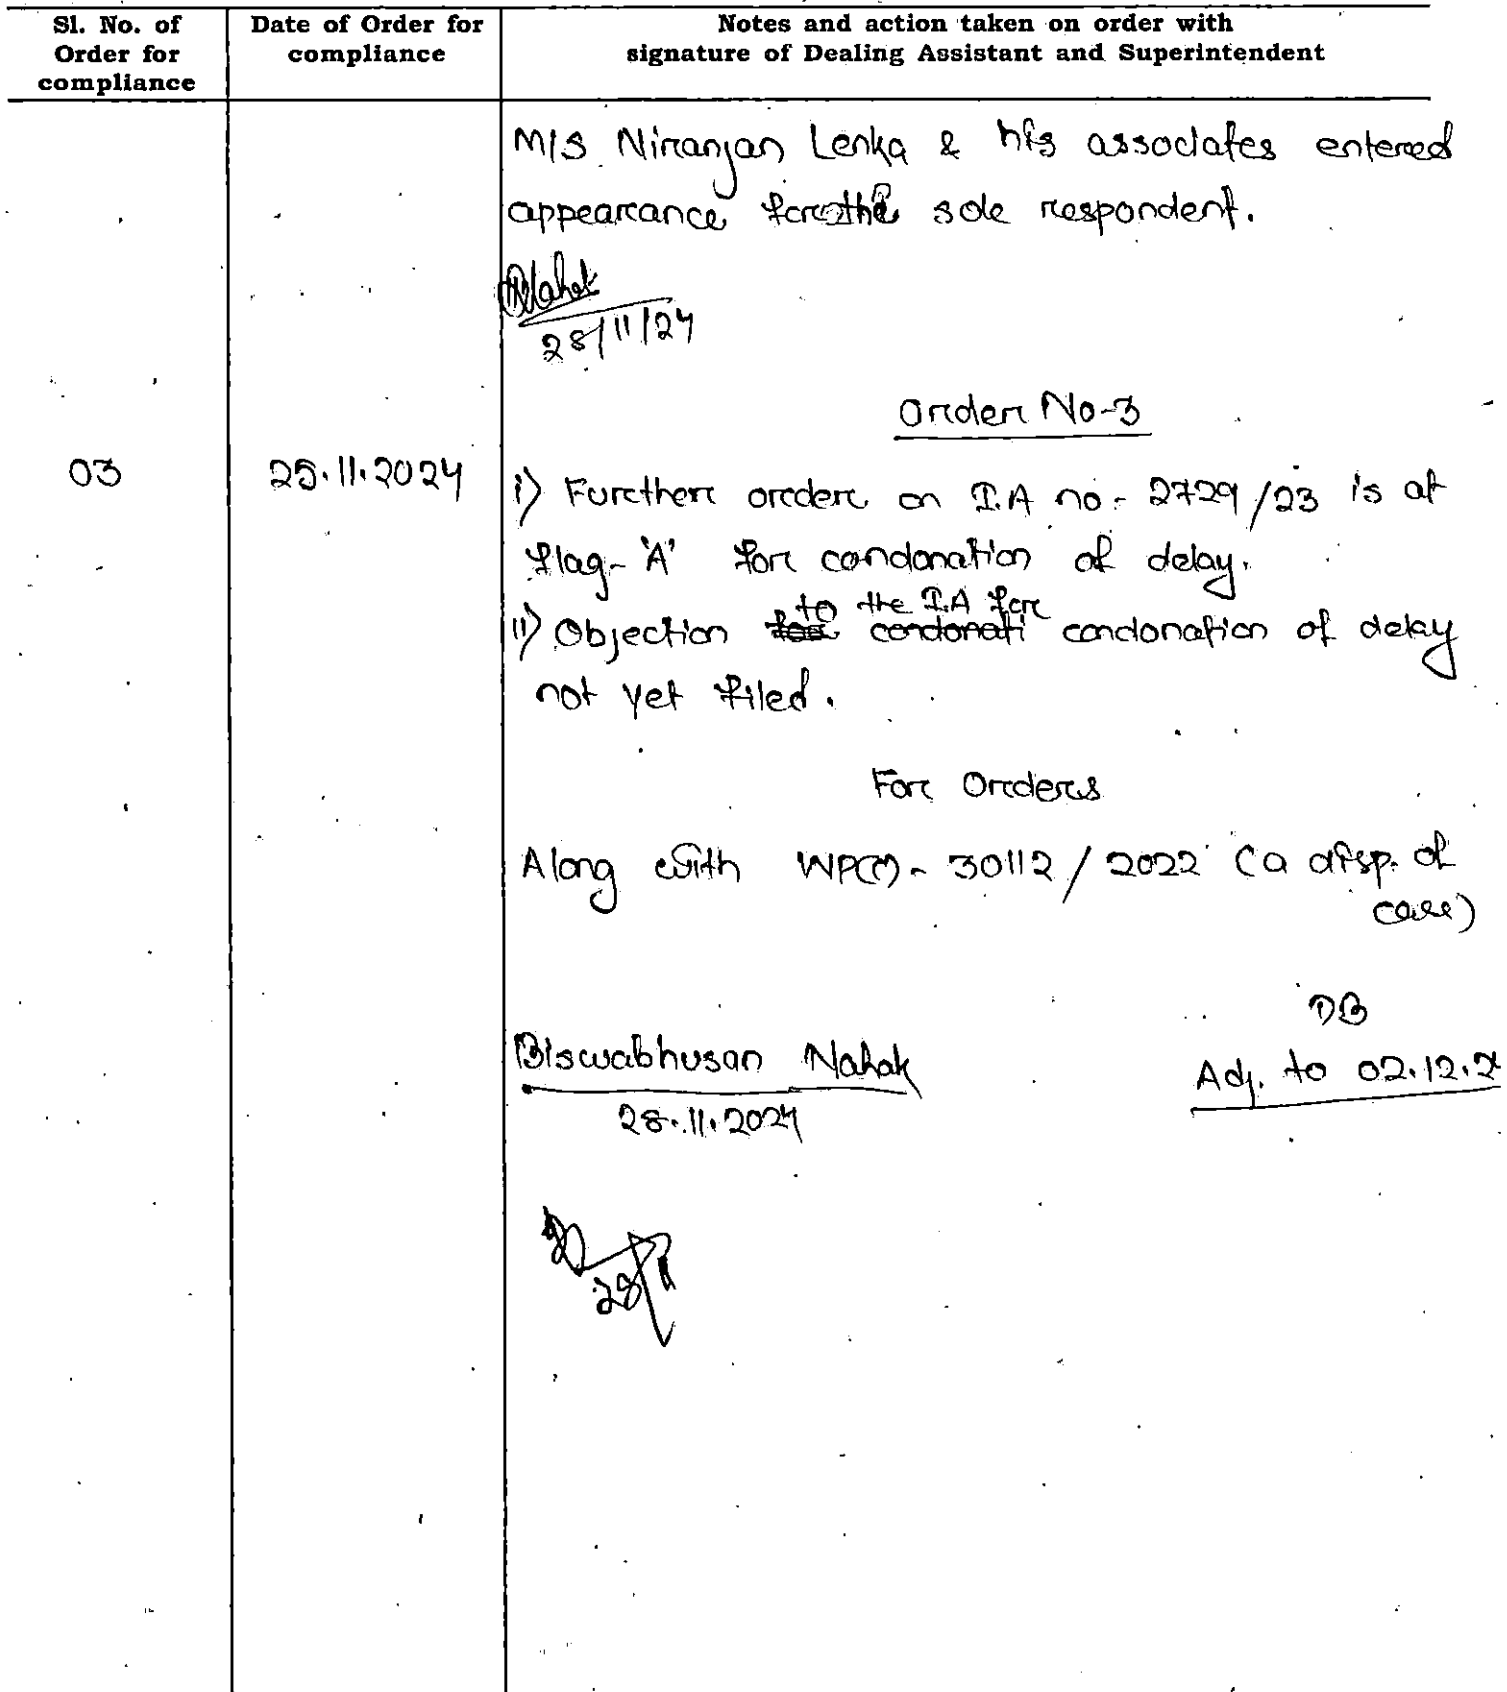 Sl. No. of Order for compliance
Date of Order for compliance
Notes and action taken on order with signature of Dealing Assistant and Superintendent
M/S. Niranjan Lenka & his associates entered
appearance for the sole respondent.
Nahak
28/11/24
Order No-3
03
25.11.2024
i) Further order on I.A no- 2729/23 is at
flag- 'A' for condonation of delay.
to the I.A for
ii) Objection for condonati condonation of delay
not yet filed.
For Orders
Along with WP(C)- 30112/2022 (a disp. of
case)
DB
Biswabhusan Nahak
Adj. to 02.12.2
28.11.2024
28/11